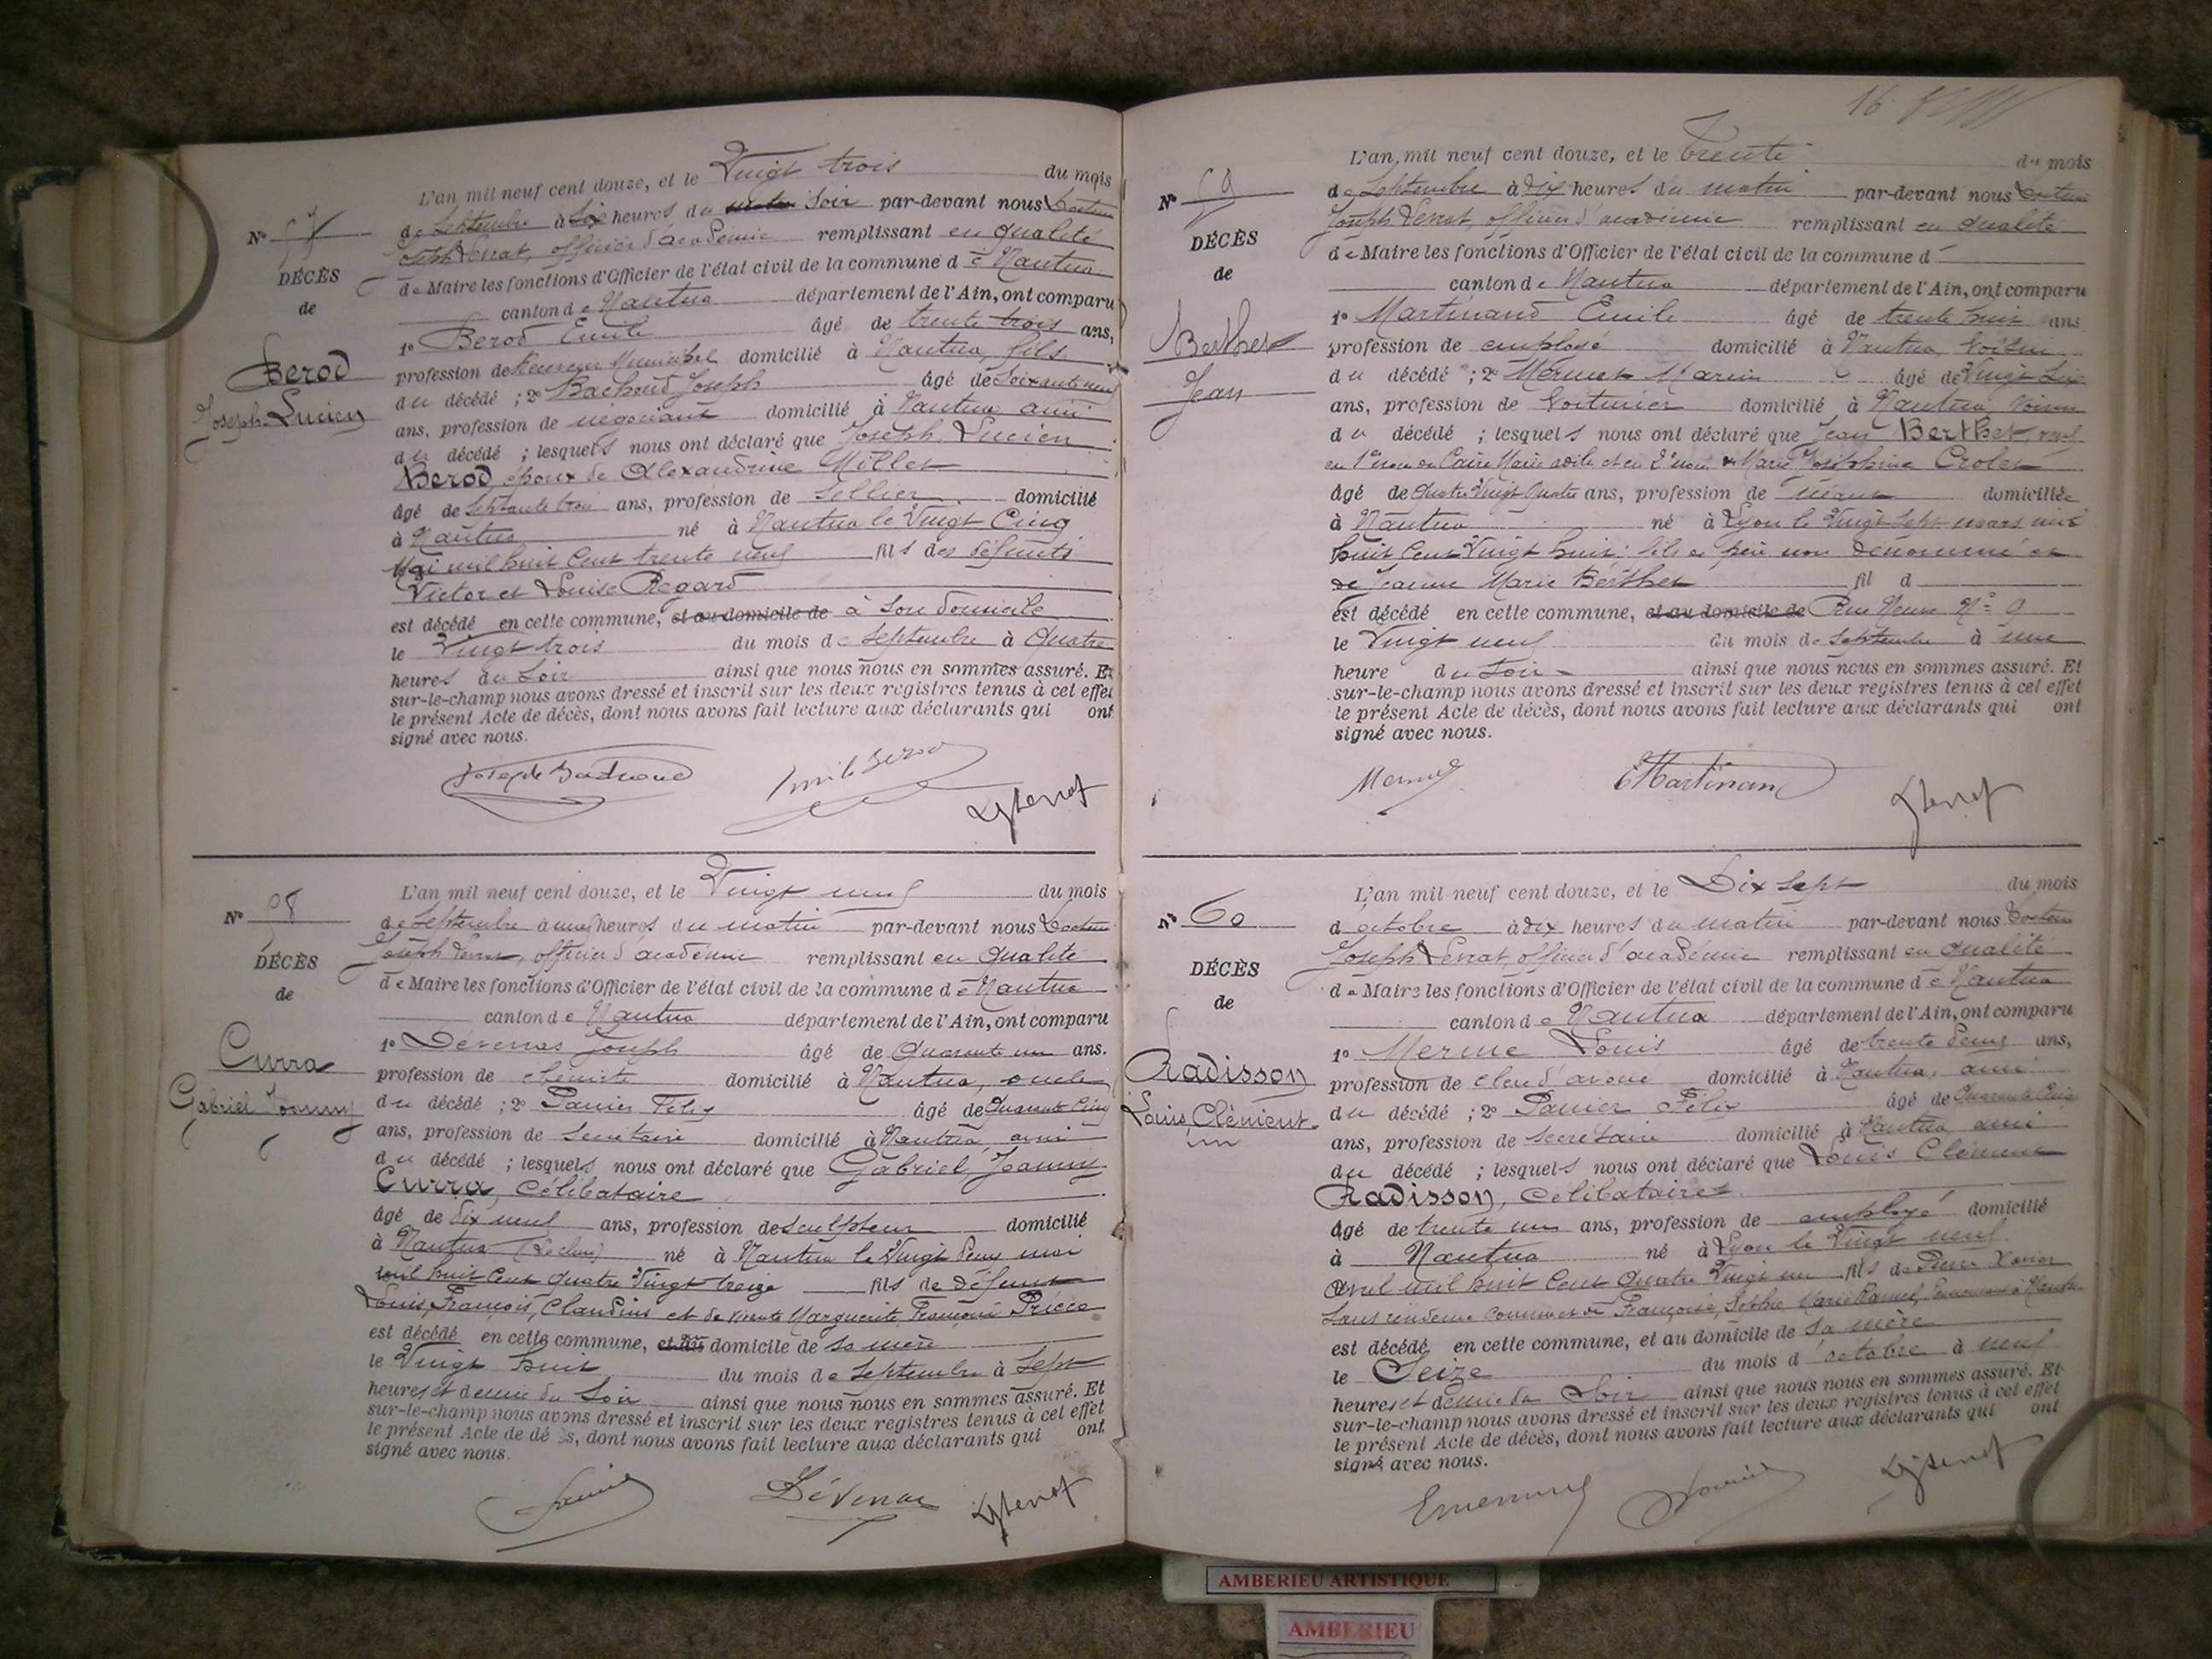 L'an mil neuf cent douze, et le Vingt trois du mois
de Septembre à Six heures du matin Soir par-devant nous Docteur
Joseph Levrat, officier d'académie remplissant en qualité
de Maire les fonctions d'Officier de l'état civil de la commune de Nantua
canton de Nantua département de l'Ain, ont comparu
1º Berod Emile âgé de trente trois ans,
profession de Receveur Municipal domicilié à Nantua, fils
du décédé ; 2º Bachoud Joseph âgé de Soixante neuf
ans, profession de négociant domicilié à Nantua ami
du décédé ; lesquels nous ont déclaré que Joseph Lucien
Berod, époux de Alexandrine Millet
âgé de Septante trois ans, profession de Sellier domicilié
à Nantua né à Nantua le Vingt Cinq
Mai mil huit Cent trente neuf fils des défunts
Victor et Louise Regard
est décédé en cette commune, et au domicile de à Son domicile
le Vingt trois du mois de Septembre à Quatre
heures du Soir ainsi que nous nous en sommes assuré. Et
sur-le-champ nous avons dressé et inscrit sur les deux registres tenus à cet effet
le présent Acte de décès, dont nous avons fait lecture aux déclarants qui ont
signé avec nous.
Nº 57
DÉCÈS
de
Berod
Joseph Lucien
Joseph Bachoud Emile Berod Levrat
L'an mil neuf cent douze, et le Vingt neuf du mois
Nº 58
de Septembre à neuf heures du matin par-devant nous Docteur
Joseph Levrat, officier d'académie remplissant en Qualité
de Maire les fonctions d'Officier de l'état civil de la commune de Nantua
canton de Nantua département de l'Ain, ont comparu
1º Dévenas Joseph âgé de Quarante un ans.
profession de ébéniste domicilié à Nantua, oncle
du décédé ; 2º Panier Félix âgé de Quarante Cinq
ans, profession de Secrétaire domicilié à Nantua, ami
du décédé ; lesquels nous ont déclaré que Gabriel, Joanny
Curra, Célibataire
âgé de dix neuf ans, profession de sculpteur domicilié
à Nantua né à Nantua le Vingt deux mai
mil huit Cent Quatre Vingt treize fils de défunt
Louis, François, Claudius et de vivante Marguerite, Françoise
est décédé en cette commune, domicile de Sa mère
le Vingt huit du mois de Septembre à Sept
heures et demie du Soir ainsi que nous nous en sommes assuré. Et
sur-le-champ nous avons dressé et inscrit sur les deux registres tenus à cet effet
le présent Acte de décès, dont nous avons fait lecture aux déclarants qui ont
signé avec nous.
DÉCÈS
de
Curra
Gabriel Joanny
Panier Dévenas Levrat
16
L'an mil neuf cent douze, et le trente du mois
Nº 59
de Septembre à Dix heures du matin par-devant nous Docteur
Joseph Levrat, officier d'académie remplissant en Qualité
de Maire les fonctions d'Officier de l'état civil de la commune d
canton de Nantua département de l'Ain, ont comparu
1º Martinand Emile âgé de trente huit ans
profession de employé domicilié à Nantua Voisin
du décédé ; 2º Mermet Marin âgé de Vingt Six
ans, profession de Voiturier domicilié à Nantua, Voisin
du décédé ; lesquels nous ont déclaré que Jean Berthet, veuf
en 1res noces de Claire Marie et en 2es noces de Marie Joséphine Crolet
âgé de Quatre Vingt Quatre ans, profession de néant domicilié
à Nantua né à Lyon le Vingt Sept mars mil
huit Cent Vingt huit ; fils de père non dénommé et
de Jeanne Marie Berthet fil d
est décédé en cette commune, et au domicile de Rue Neuve Nº 9
le Vingt neuf du mois de Septembre à une
heure du Soir ainsi que nous nous en sommes assuré. Et
sur-le-champ nous avons dressé et inscrit sur les deux registres tenus à cet effet
le présent Acte de décès, dont nous avons fait lecture aux déclarants qui ont
signé avec nous.
DÉCÈS
de
Berthet
Jean
Mermet Martinand Levrat
L'an mil neuf cent douze, et le Dix Sept du mois
Nº 60
d'octobre à dix heures du matin par-devant nous Docteur
Joseph Levrat, officier d'académie remplissant en qualité
de Maire les fonctions d'Officier de l'état civil de la commune de Nantua
canton de Nantua département de l'Ain, ont comparu
1º Merme Louis âgé de trente deux ans,
profession de clerc d'avoué domicilié à Nantua, ami
du décédé ; 2º Panier Félix âgé de Quarante Cinq
ans, profession de Secrétaire domicilié à Nantua ami
du décédé ; lesquels nous ont déclaré que Louis Clément
Radisson, Célibataire
âgé de trente un ans, profession de employé domicilié
à Nantua né à Lyon le Vingt neuf
Avril mil huit Cent Quatre Vingt un fils de Pierre
Sans résidence connue et de Françoise, Sophie Marie
est décédé en cette commune, et au domicile de Sa mère
le Seize du mois d'octobre à neuf
heures et demie du Soir ainsi que nous nous en sommes assuré. Et
sur-le-champ nous avons dressé et inscrit sur les deux registres tenus à cet effet
le présent Acte de décès, dont nous avons fait lecture aux déclarants qui ont
signé avec nous.
DÉCÈS
de
Radisson
Louis Clément
Panier Levrat
AMBERIEU ARTISTIQUE
AMBERIEU